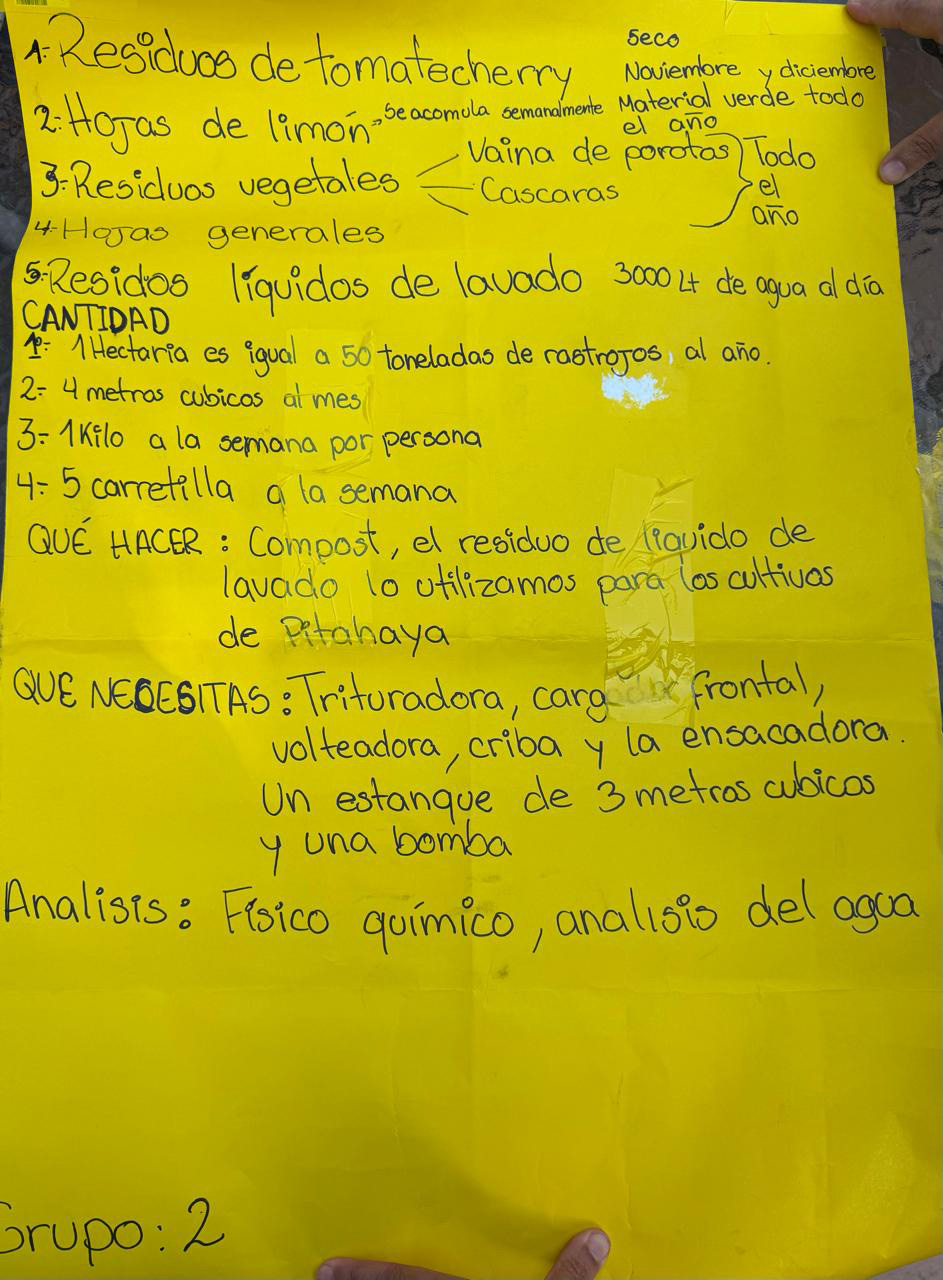 1-Residuos de tomatecherry
seco
Noviembre y diciembre
Material verde todo
el año
2-Hojas de limón → Se acomula semanalmente
3-Residuos vegetales
Vaina de porotos
Cascaras
Todo
el
año
4-Hojas generales
5-Residos líquidos de lavado 3000 Lt de agua al día
CANTIDAD
1º- 1 Hectaria es igual a 50 toneladas de rastrojos, al año.
2- 4 metros cubicos al mes
3- 1 Kilo a la semana por persona
4- 5 carretilla a la semana
QUÉ HACER : Compost, el residuo de liquido de
lavado lo utilizamos para los cultivos
de Pitahaya
QUE NECESITAS : Trituradora, cargadora frontal,
volteadora, criba y la ensacadora.
Un estanque de 3 metros cubicos
y una bomba
Analisis : Físico químico, analisis del agua
Grupo : 2